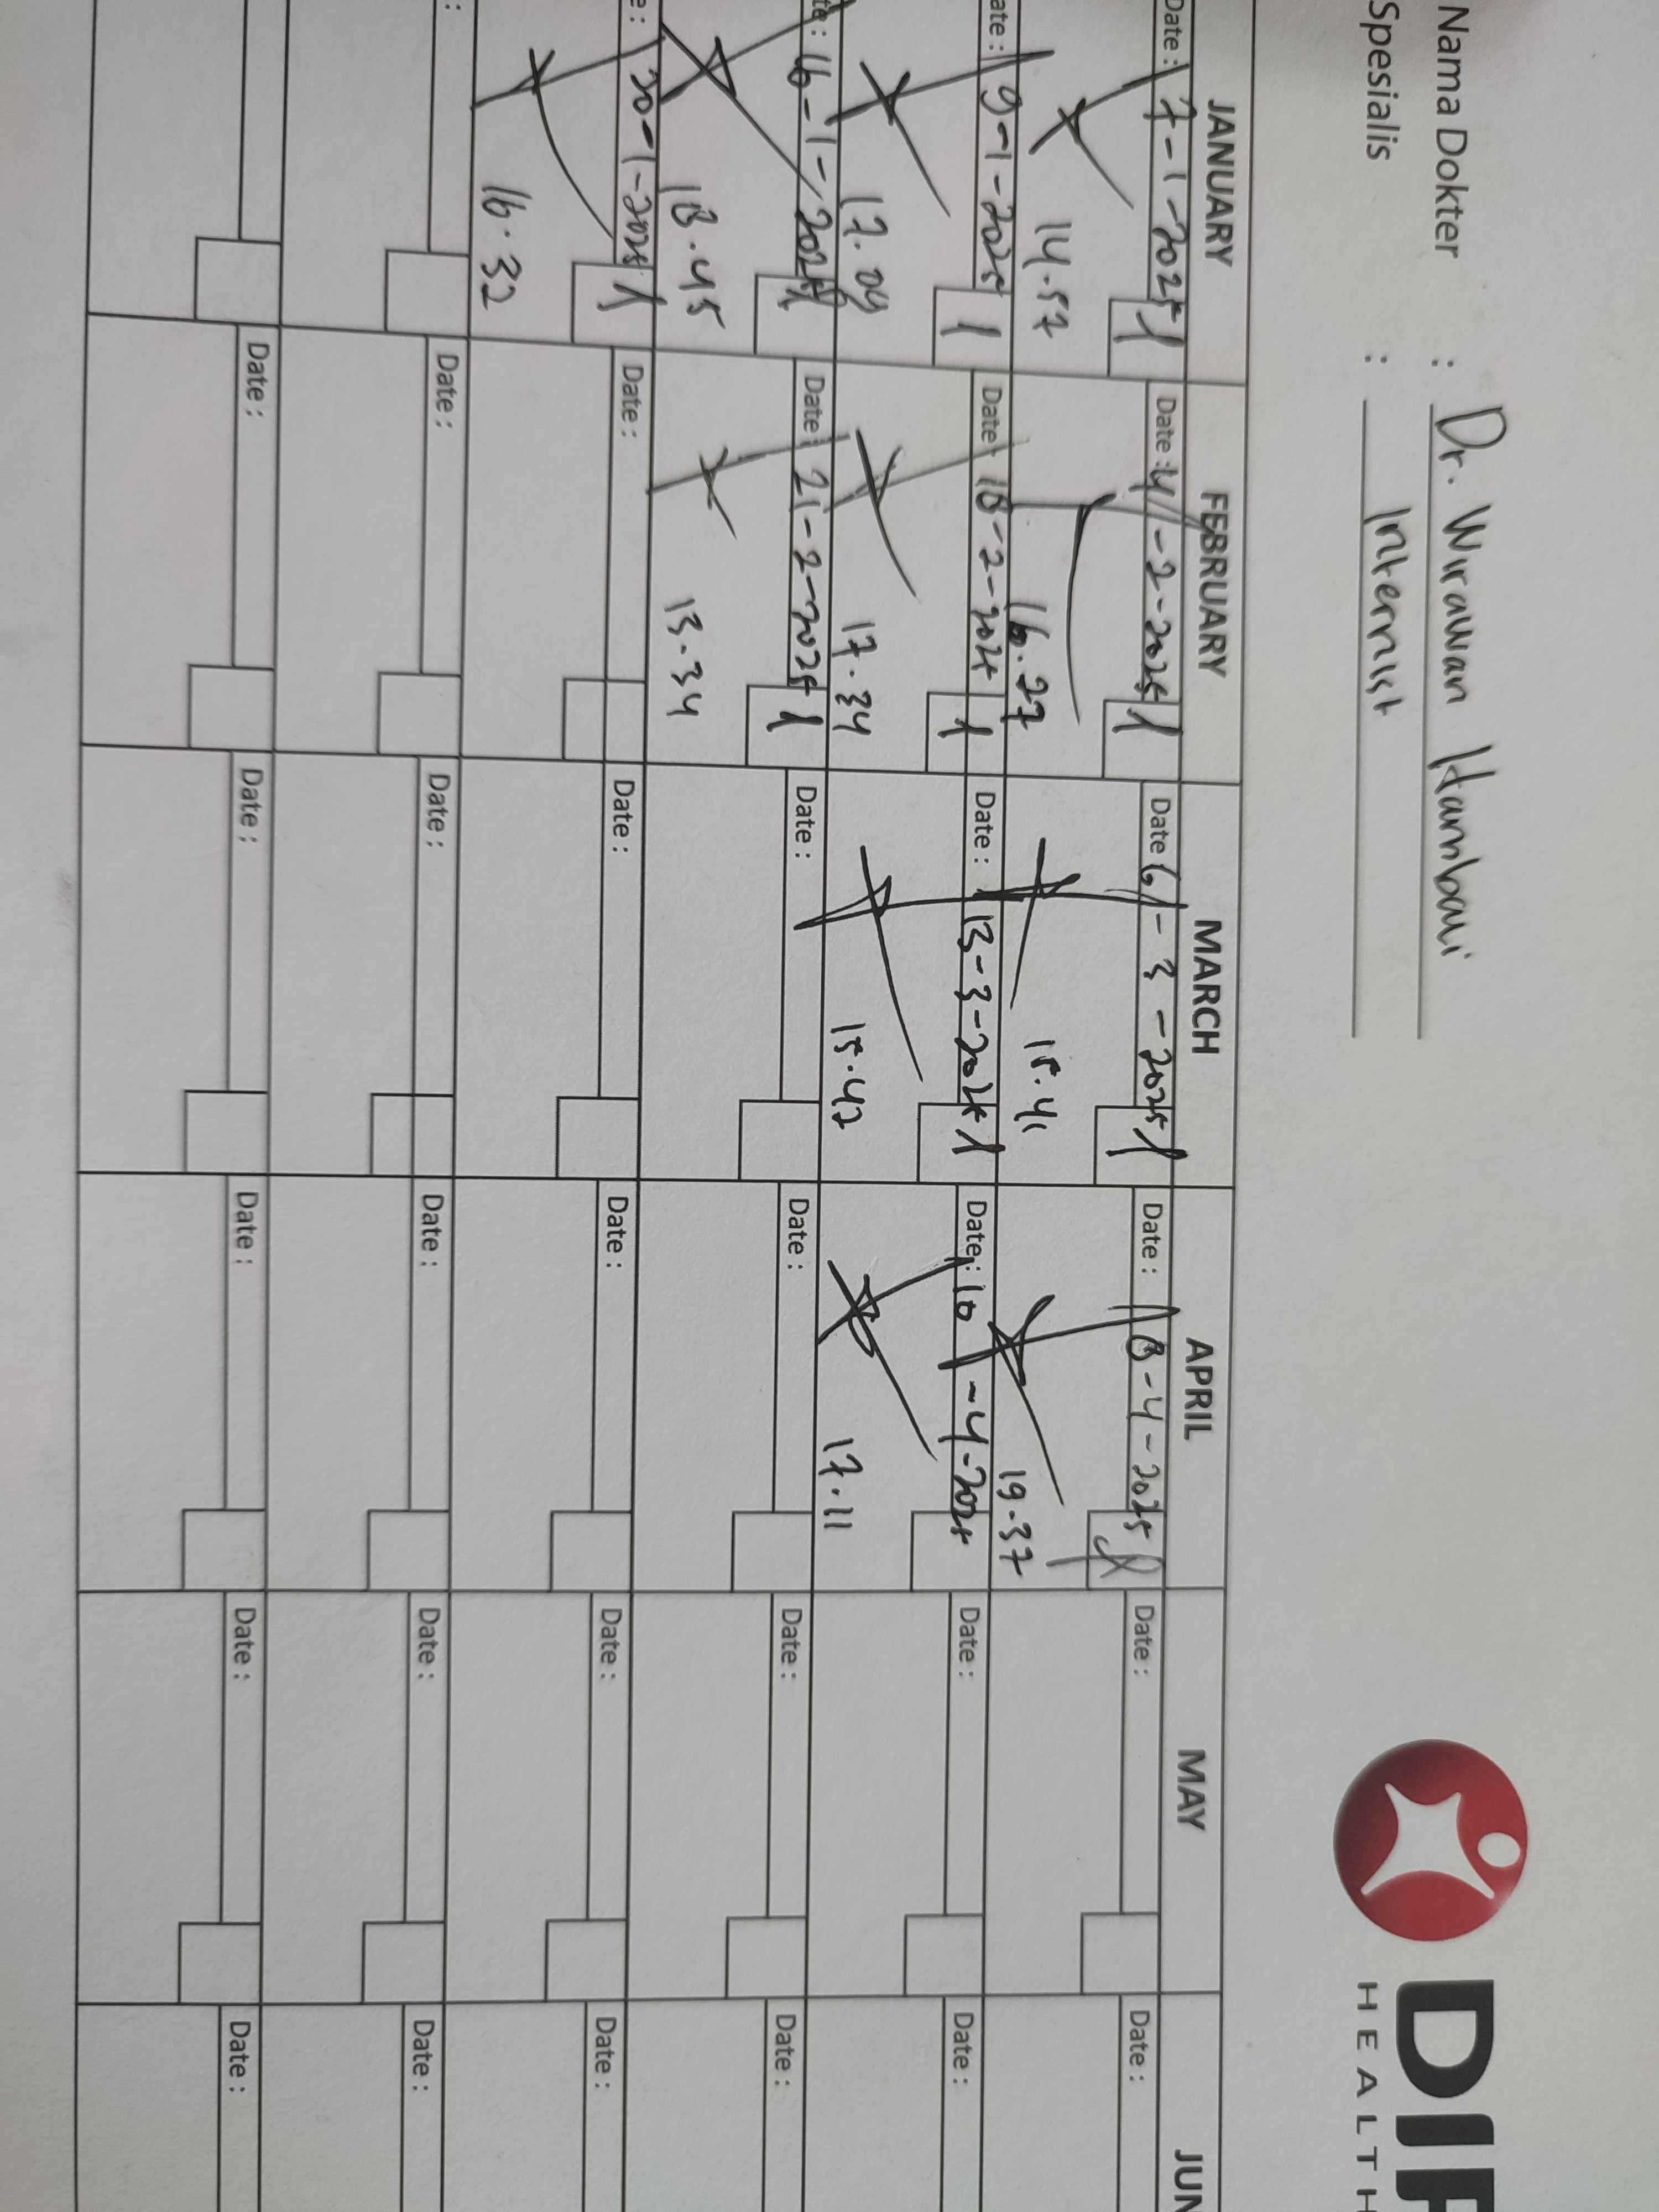 Nama Dokter : Dr. Wirawan Hambali
Spesialis : Internist
DI
HEALTH
JANUARY FEBRUARY MARCH APRIL MAY JUN
Date: 7-1-2025 1 Date: 4-2-2025 1 Date 6-3-2025 1 Date: 8-4-2025 Date: Date:
14.57 16.27 15.41 19.37
ate: 9-1-2025 1 Date 18-2-2025 1 Date: 13-3-2025 1 Date: 10-4-2025 Date: Date:
17.09 17.34 15.42 17.11
te: 16-1-2025 1 Date: 21-2-2025 1 Date: Date: Date: Date:
18.45 13.34
e: 30-1-2025 1 Date: Date: Date: Date: Date:
16.32
: Date: Date: Date: Date: Date:
Date: Date: Date: Date: Date: